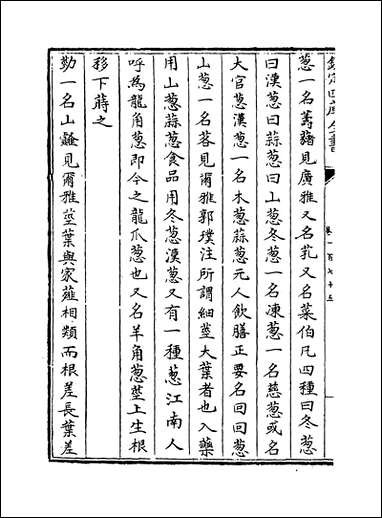 欽定四庫全書
卷一百七十五
葱一名蒚䕽見廣雅又名芤又名菜伯凡四種曰冬葱
曰漢葱曰蒜葱曰山葱冬葱一名凍葱一名慈葱或名
大官葱漢葱一名木葱蒜葱元人飲膳正要名回回葱
山葱一名茖見爾雅郭璞注所謂細莖大葉者也入藥
用山葱蒜葱食品用冬葱漢葱又有一種葱江南人
呼為龍角葱即今之龍爪葱也又名羊角葱莖上生根
移下蒔之
勤一名山䪥見爾雅莖葉與家薤相類而根差長葉差